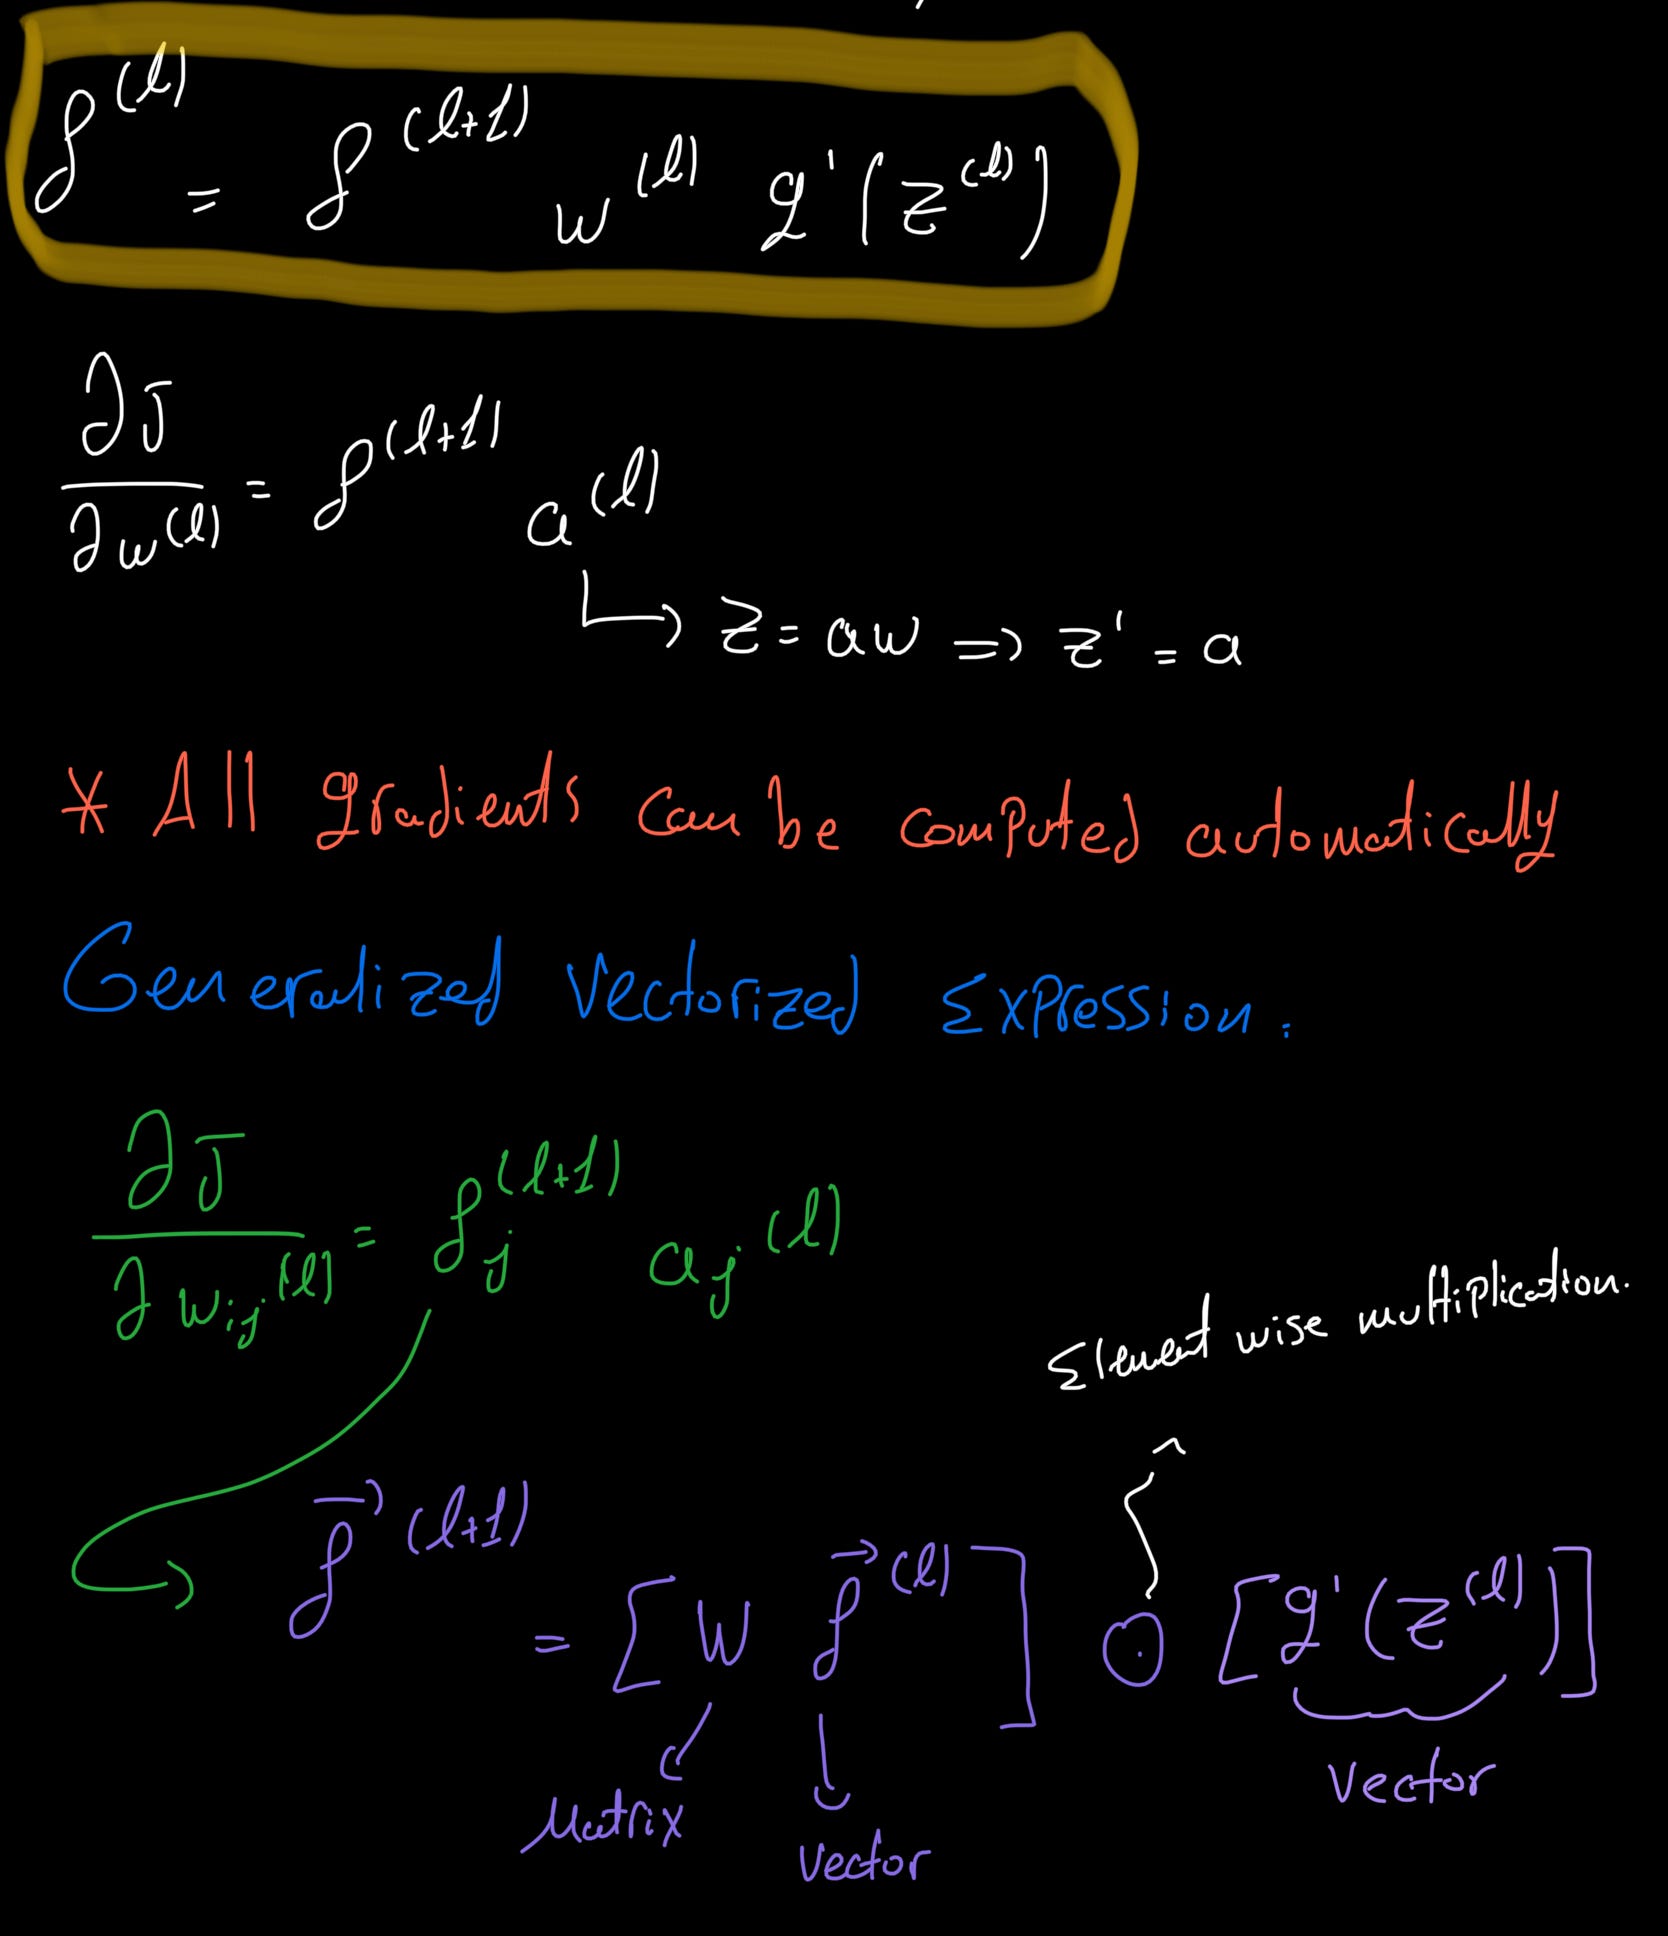 δ^(l) = δ^(l+1) w^(l) g'(z^(l))
∂J/∂w^(l) = δ^(l+1) a^(l)
↳ z = aw ⇒ z' = a
* All gradients can be computed automatically
Generalized Vectorized Expression:
∂J/∂w_ij^(l) = δ_j^(l+1) a_j^(l)
Element wise multiplication.
→ δ⃗^(l+1) = [W δ⃗^(l)] ⊙ [g'(z^(l))]
Matrix vector vector